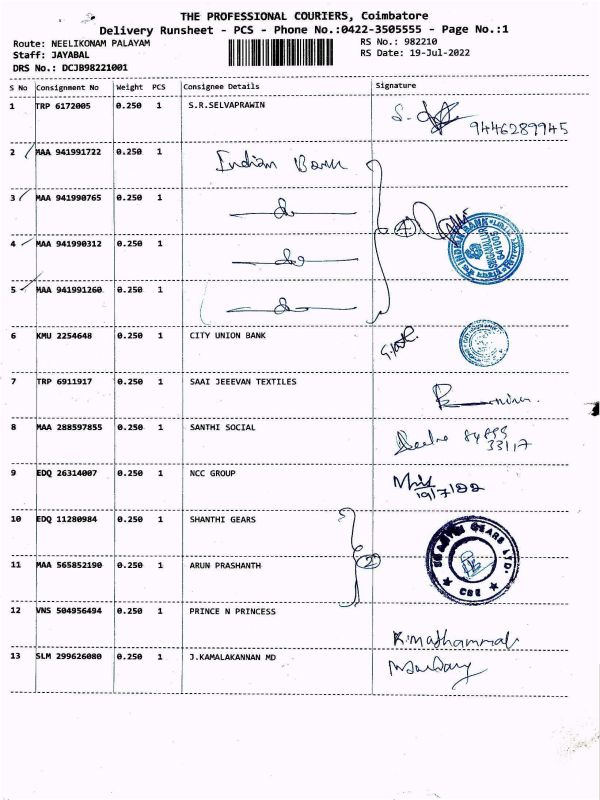 THE PROFESSIONAL COURIERS, Coimbatore
Delivery Runsheet - PCS - Phone No.:0422-3505555 - Page No.:1
Route: NEELIKONAM PALAYAM RS No.: 982210
Staff: JAYABAL RS Date: 19-Jul-2022
DRS No.: DCJB98221001
S No Consignment No Weight PCS Consignee Details Signature
1 TRP 6172005 0.250 1 S.R.SELVAPRAWIN
9446289945
2 MAA 941991722 0.250 1 Indian Bank
3 MAA 941990765 0.250 1 do
4 MAA 941990312 0.250 1 do
5 MAA 941991260 0.250 1 do
4
641005
6 KMU 2254648 0.250 1 CITY UNION BANK
7 TRP 6911917 0.250 1 SAAI JEEEVAN TEXTILES
8 MAA 288597855 0.250 1 SANTHI SOCIAL
9 EDQ 26314007 0.250 1 NCC GROUP
19/7/22
10 EDQ 11280984 0.250 1 SHANTHI GEARS
11 MAA 565852190 0.250 1 ARUN PRASHANTH
2
GEARS LTD.
CBE
12 VNS 504956494 0.250 1 PRINCE N PRINCESS
13 SLM 299626080 0.250 1 J.KAMALAKANNAN MD